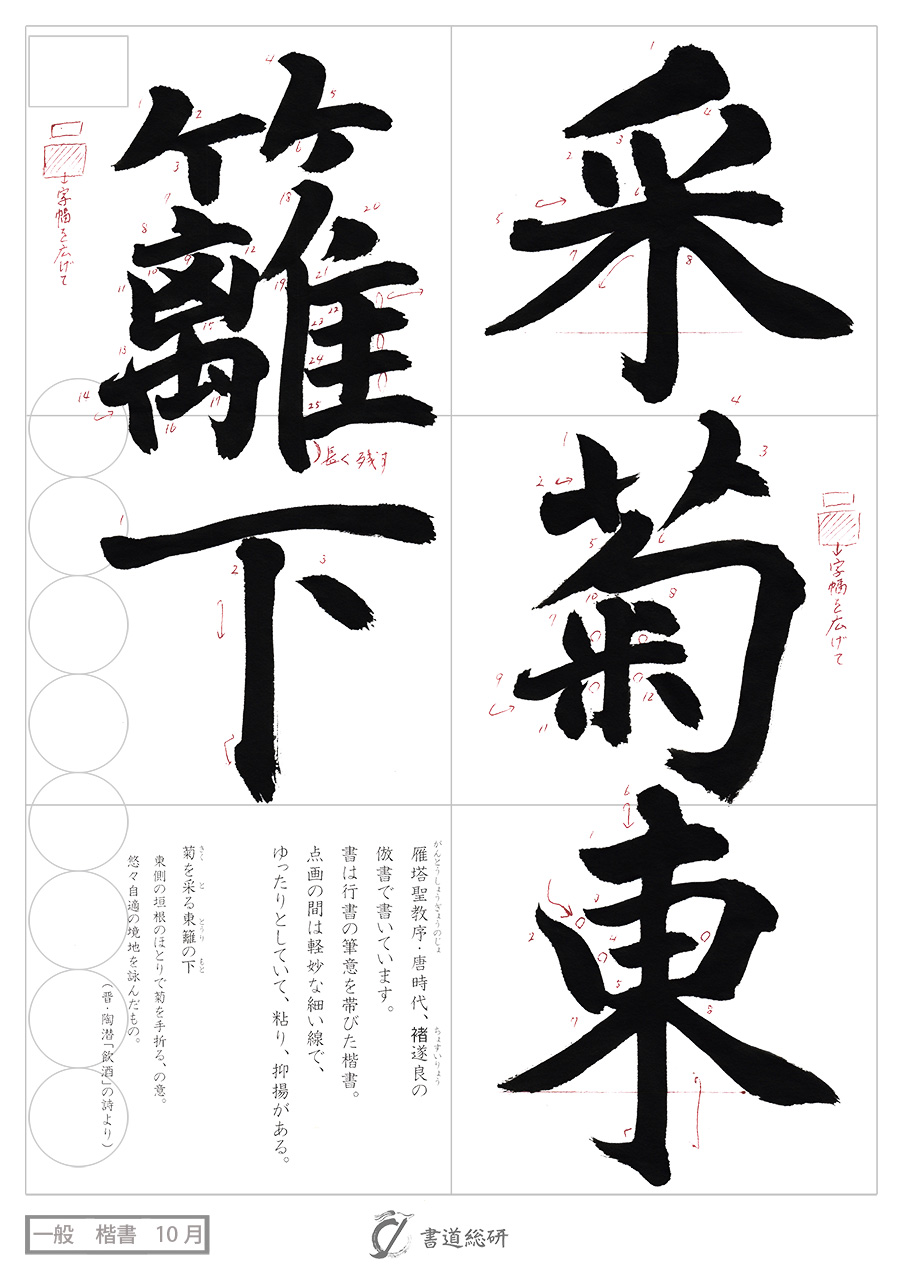 采
菊
東
籬
下
字幅を広げて
字幅を広げて
長く残す
雁塔聖教序・唐時代、褚遂良の
がんとうしょうぎょうのじょ
ちょすいりょう
倣書で書いています。
書は行書の筆意を帯びた楷書。
点画の間は軽妙な細い線で、
ゆったりとしていて、粘り、抑揚がある。
菊を采る東籬の下
きく と とうり もと
東側の垣根のほとりで菊を手折る、の意。
悠々自適の境地を詠んだもの。
(晋・陶潜「飲酒」の詩より)
一般 楷書 10月
書道総研